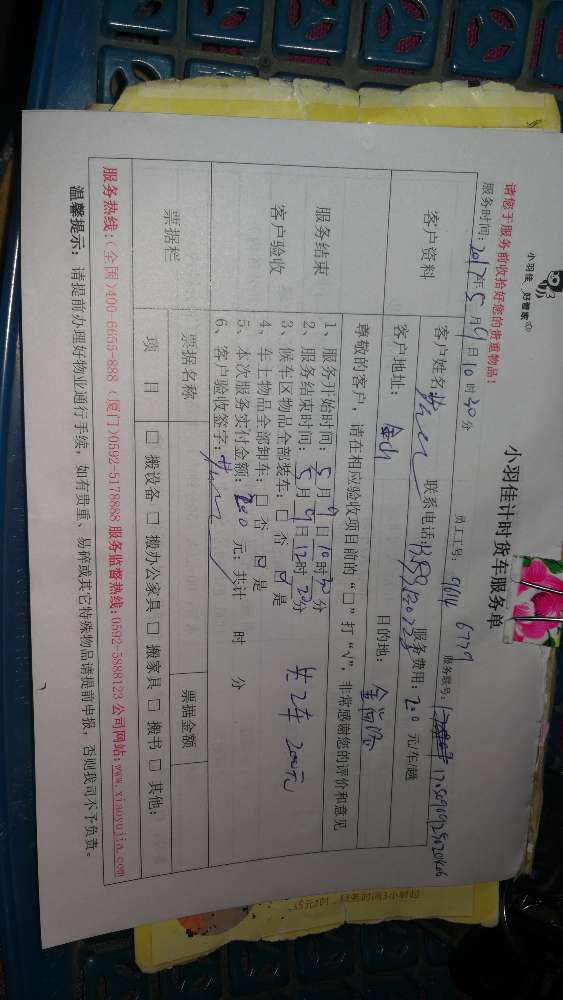 小羽佳 好管家
小羽佳计时货车服务单
请您于服务前收拾好您的贵重物品!
服务时间:2017年5月9日10时30分 员工工号:9614 6779 服务联号:
客户资料
客户姓名: 联系电话: 服务费用:200元/车/趟
客户地址:金山 目的地:
服务结束
客户验收
尊敬的客户,请在相应验收项目前的“□”打“√”,非常感谢您的评价和意见
1、服务开始时间:5月9日10时30分
2、服务结束时间:5月9日12时20分
3、候车区物品全部装车:□ 否 ☑ 是
4、车上物品全部卸车:□ 否 ☑ 是
共2车 200元
5、本次服务实付金额:200元;共计 时 分
6、客户验收签字:
票据栏
票据名称 票据金额
项 目 □ 搬设备 □ 搬办公家具 □ 搬家具 □ 搬书 □ 其他:
服务热线:(全国)400-6655-888 (厦门)0592-5178888 服务监督热线:0592-5888123 公司网站:www.xiaoyujia.com
温馨提示:请提前办理好物业通行手续,如有贵重、易碎或其它特殊物品请提前申报,否则我司不予负责。